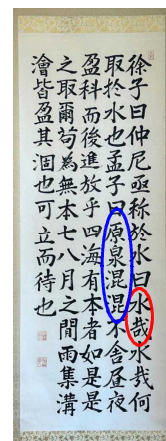 徐子曰仲尼亟稱於水曰水哉水哉何
取於水也孟子曰原泉混混不舍晝夜
盈科而後進放乎四海有本者如是是
之取爾苟為無本七八月之間雨集溝
澮皆盈其涸也可立而待也